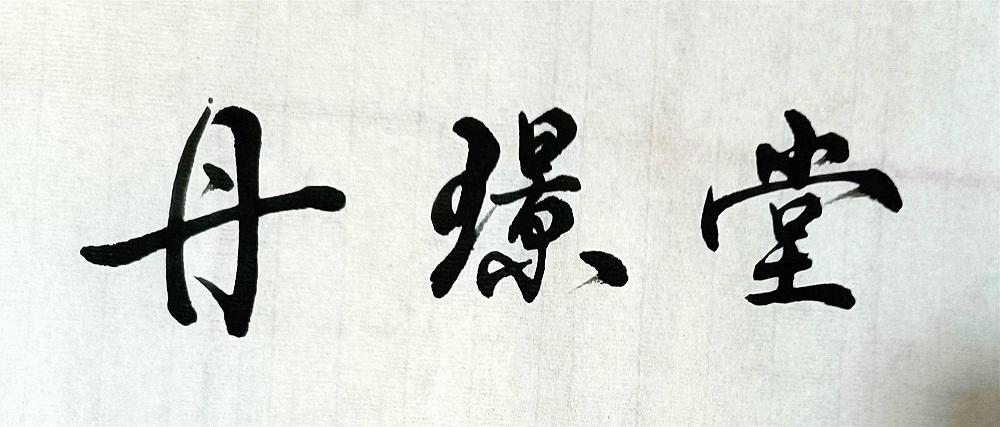 丹璟堂